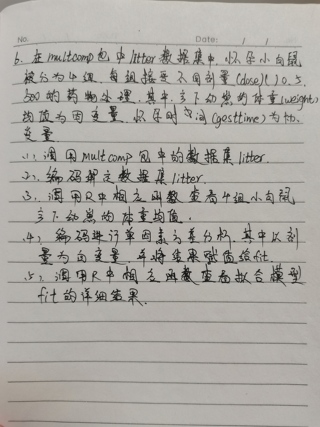 No.
Date: / /
6. 在multcomp包中litter数据集中,怀孕小白鼠
被分为4组,每组接受不同剂量(dose)(0,5,
500的药物处理,其中,产下幼崽的体重(weight)
均值为因变量,怀孕时间(gesttime)为协
变量.
(1).调用multcomp包中的数据集litter.
(2).编码绑定数据集litter.
(3).调用R中相应函数查看4组小白鼠
产下幼崽的体重均值.
(4).编码进行单因素方差分析,其中以剂
量为自变量,并将结果赋值给fit.
(5).调用R中相应函数查看拟合模型
fit的详细结果.